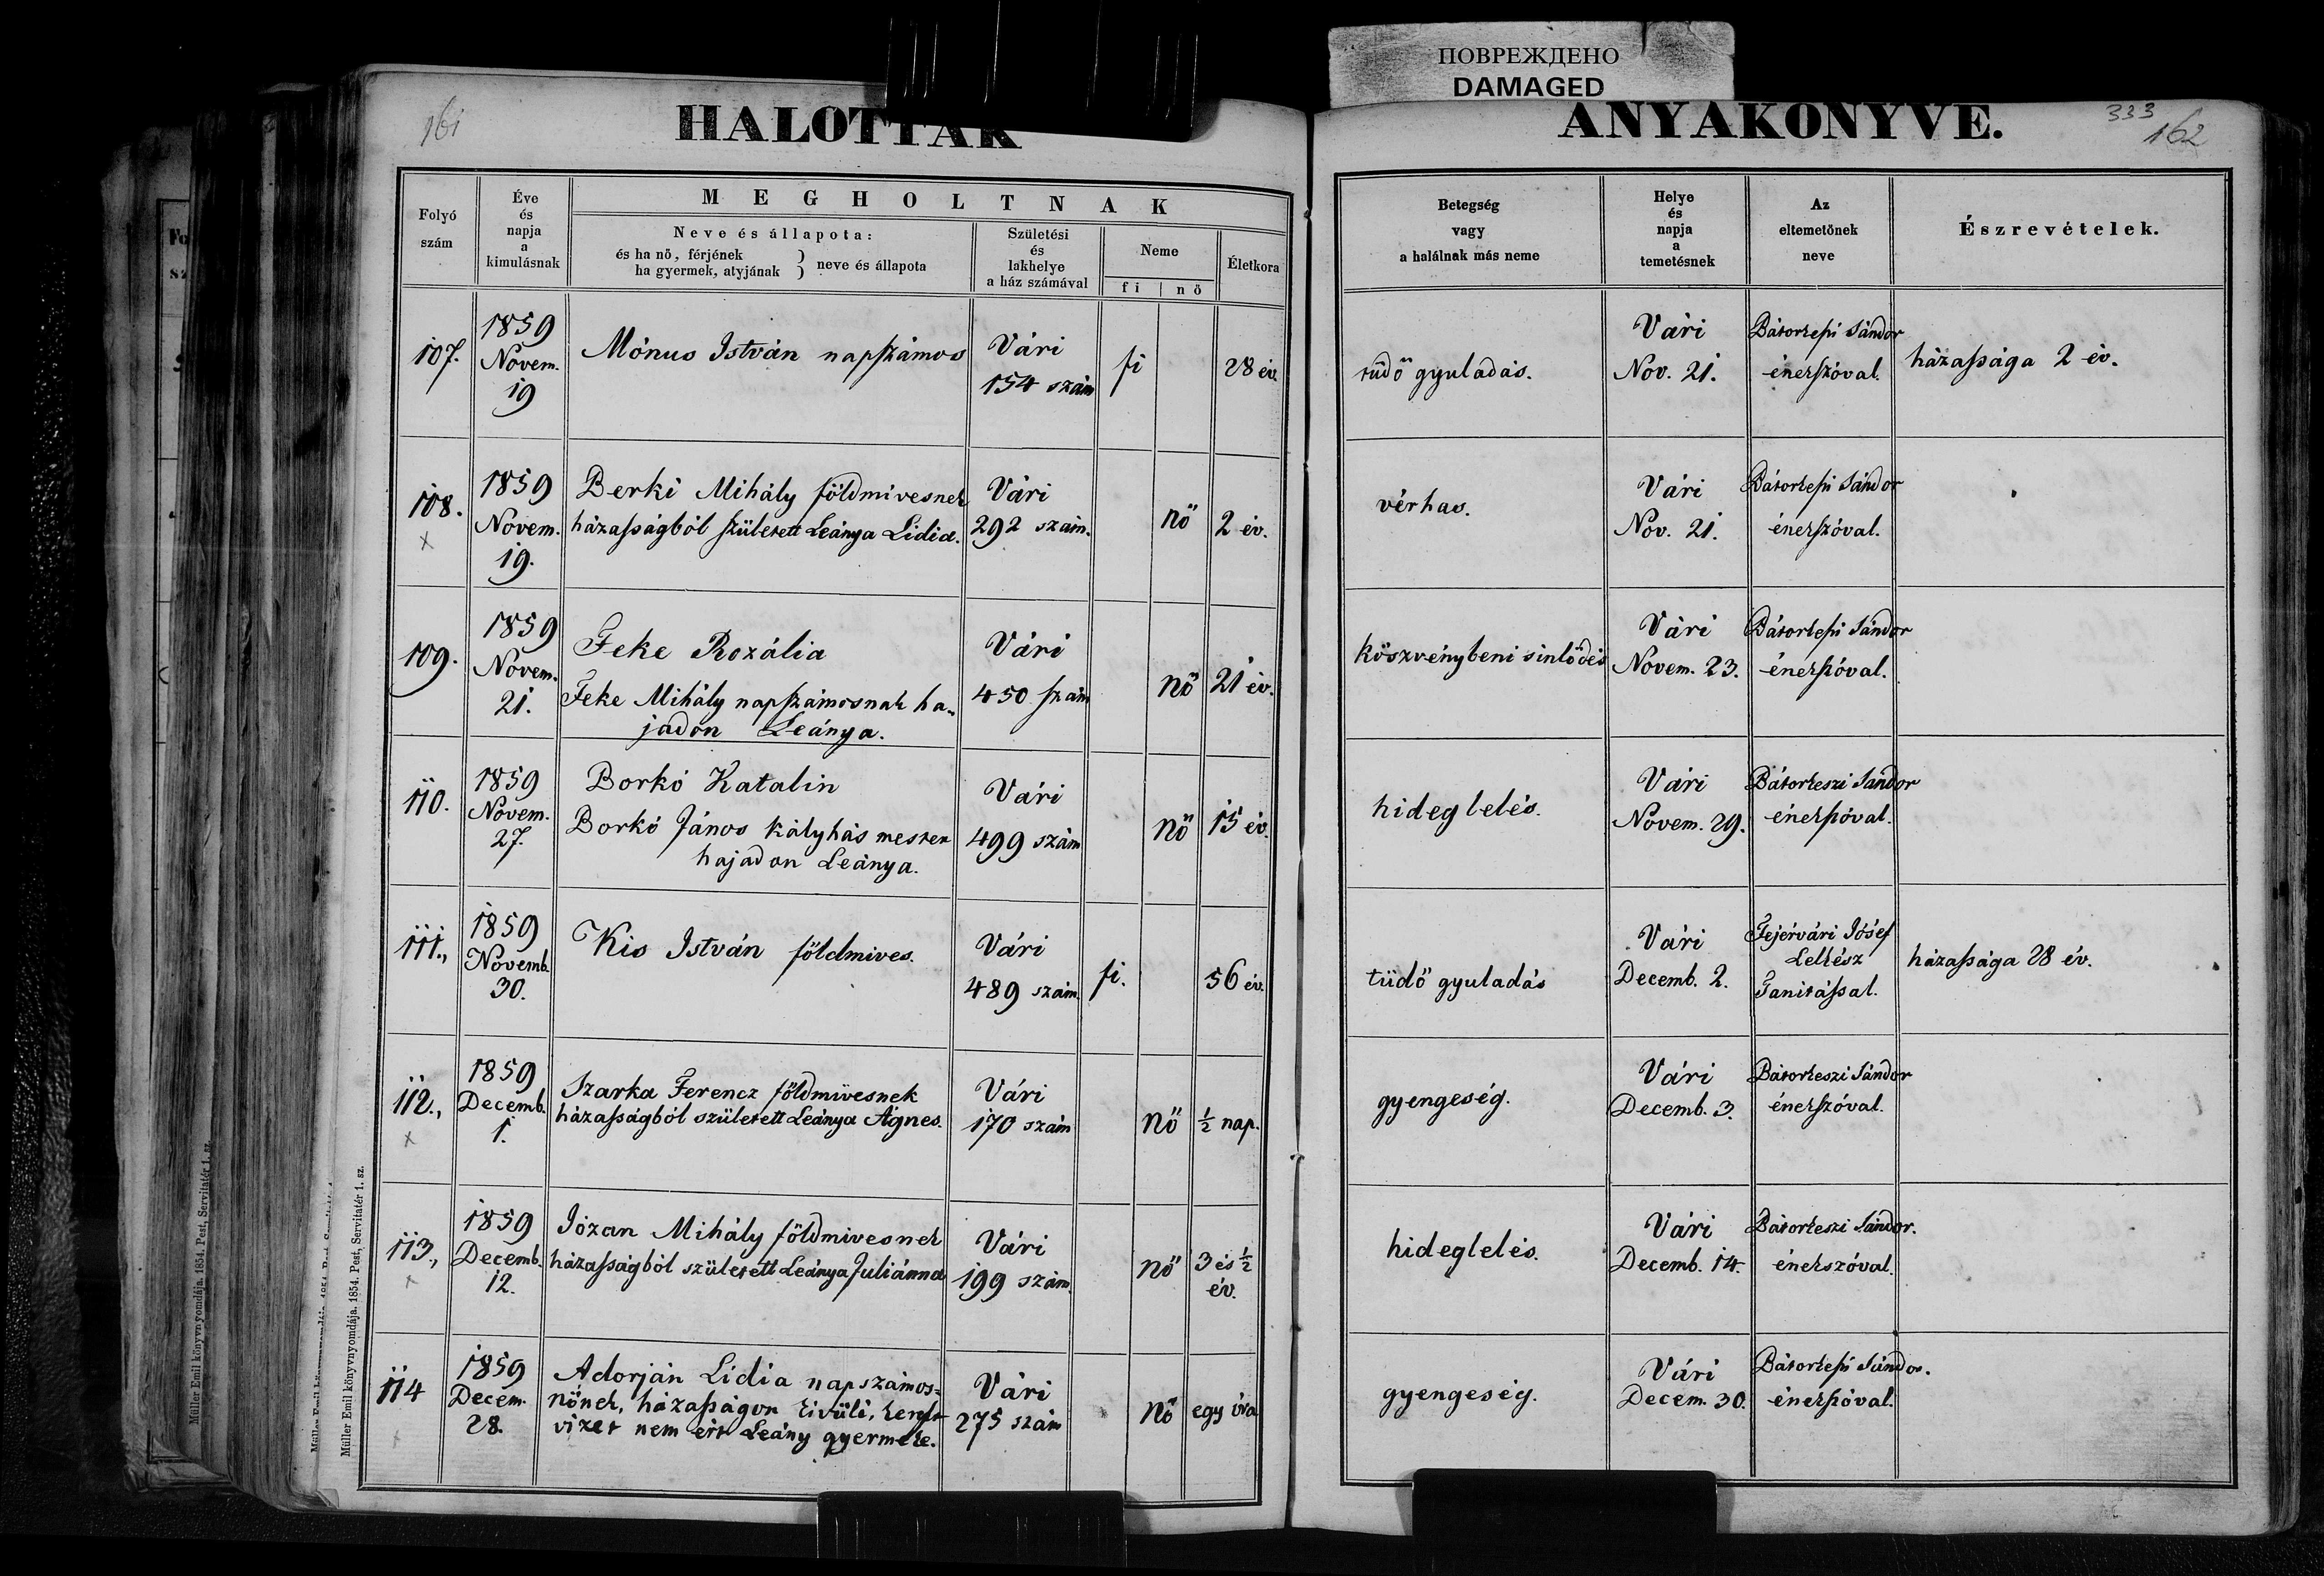 ПОВРЕЖДЕНО
DAMAGED
161
HALOTTAK
ANYAKÖNYVE.
333
162
Folyó
szám
Éve
és
napja
a
kimulásnak
MEGHOLTNAK
Neve és állapota:
és ha nő, férjének
ha gyermek, atyjának
) neve és állapota
)
Születési
és
lakhelye
a ház számával
Neme
fi | nő
Életkora
Betegség
vagy
a halálnak más neme
Helye
és
napja
a
temetésnek
Az
eltemetőnek
neve
Észrevételek.
107.
1859
Novem.
19
Mónus István napszámos
Vári
154 szám
fi
28 év.
tüdő gyuladás.
Vári
Nov. 21.
Bátorkeszi Sándor
énekszóval.
házassága 2 év.
108.
x
1859
Novem.
19.
Berki Mihály földmivesnek
házasságból született Leánya Lidia.
Vári
292 szám.
nő
2 év.
vérhas.
Vári
Nov. 21.
Bátorkeszi Sándor
énekszóval.
109.
1859
Novem.
21.
Feke Rozália
Feke Mihály napszámosnak ha-
jadon Leánya.
Vári
450 szám
nő
21 év.
köszvénybeni sinlődés
Vári
Novem. 23.
Bátorkeszi Sándor
énekszóval.
110.
1859
Novem.
27.
Borkó Katalin
Borkó János kályhás mester
hajadon Leánya.
Vári
499 szám
nő
15 év.
hideglelés.
Vári
Novem. 29.
Bátorkeszi Sándor
énekszóval.
111.,
1859
Novemb.
30.
Kis István földmives.
Vári
489 szám.
fi.
56 év.
tüdő gyuladás
Vári
Decemb. 2.
Fejérvári Jósef
Lelkész
Tanitással.
házassága 28 év.
112.,
x
1859
Decemb.
1.
Szarka Ferencz földmivesnek
házasságból született Leánya Ágnes.
Vári
170 szám
nő
½ nap.
gyengeség.
Vári
Decemb. 3.
Bátorkeszi Sándor
énekszóval.
113.,
x
1859
Decemb.
12.
Józan Mihály földmivesnek
házasságból született Leánya Juliánna
Vári
199 szám.
nő
3 és ½
év.
hideglelés.
Vári
Decemb. 14.
Bátorkeszi Sándor.
énekszóval.
114
x
1859
Decem.
28.
Adorján Lidia napszámos-
nőnek, házasságon kivüli, kereszt
vizet nem ért Leány gyermeke.
Vári
275 szám
nő
egy óra
gyengeség.
Vári
Decem. 30.
Bátorkeszi Sándor.
énekszóval.
Müller Emil könyvnyomdája. 1854. Pest, Servitatér 1. sz.
Müller Emil könyvnyomdája. 1854. Pest, Servitatér 1. sz.